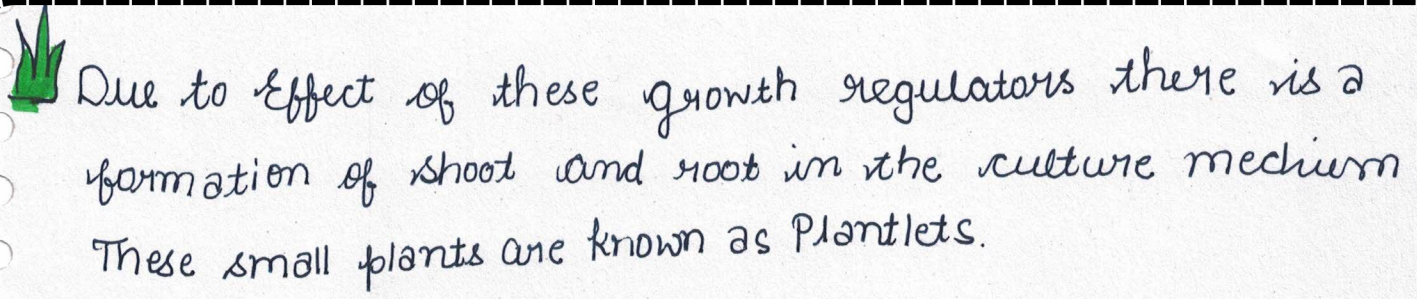 Due to Effect of these growth regulators there is a
formation of shoot and root in the culture medium
These small plants are known as Plantlets.